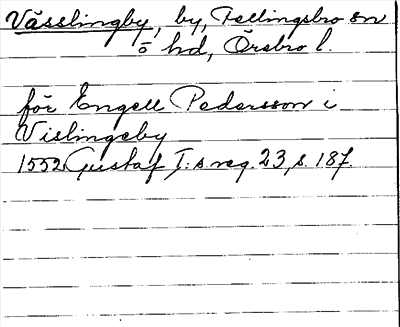 Vässlingby, by, Fellingsbro sn
ö hd, Örebro l.
för Engell Pedersson i
Vislingeby
1552 Gustaf I:s reg. 23, s. 187.